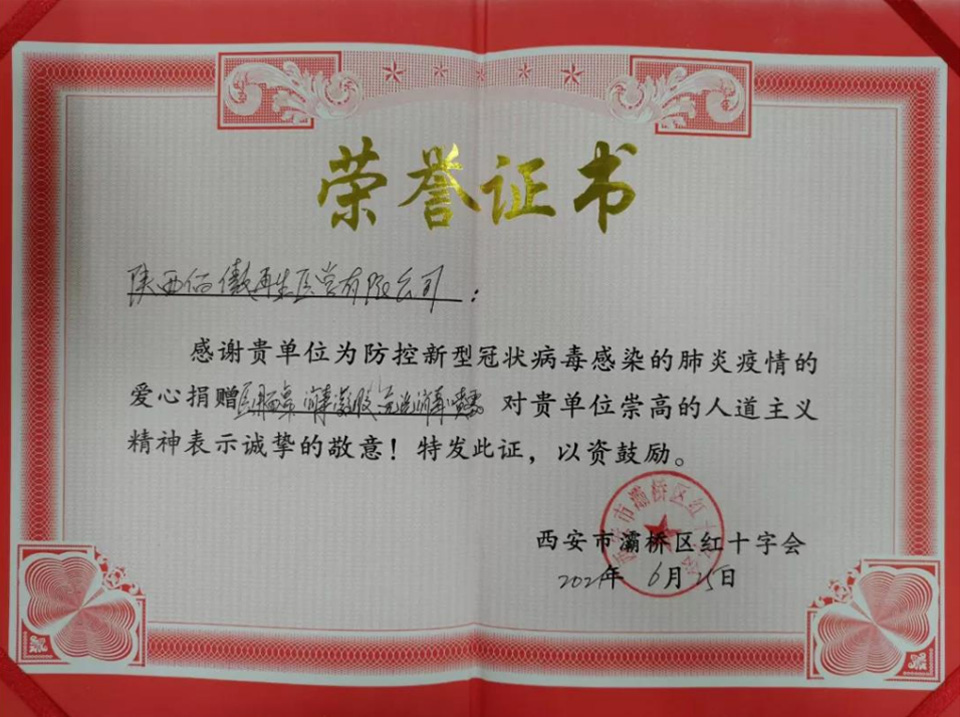 荣誉证书
陕西佰傲再生医学有限公司：
感谢贵单位为防控新型冠状病毒感染的肺炎疫情的
爱心捐赠 对贵单位崇高的人道主义
精神表示诚挚的敬意！特发此证，以资鼓励。
西安市灞桥区红十字会
西安市灞桥区红十字会
2021年 6月25日